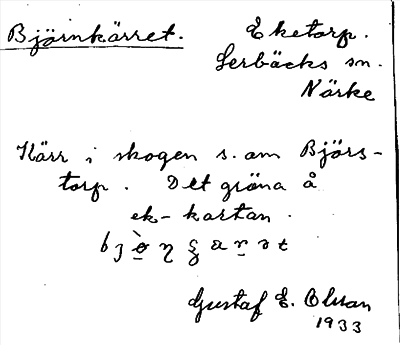 Björnkärret. Eketorp.
Lerbäcks sn.
Närke
Kärr i skogen s. om Björs-
torp. Det gröna å
ek-kartan.
Gustaf E. Olsson
1933